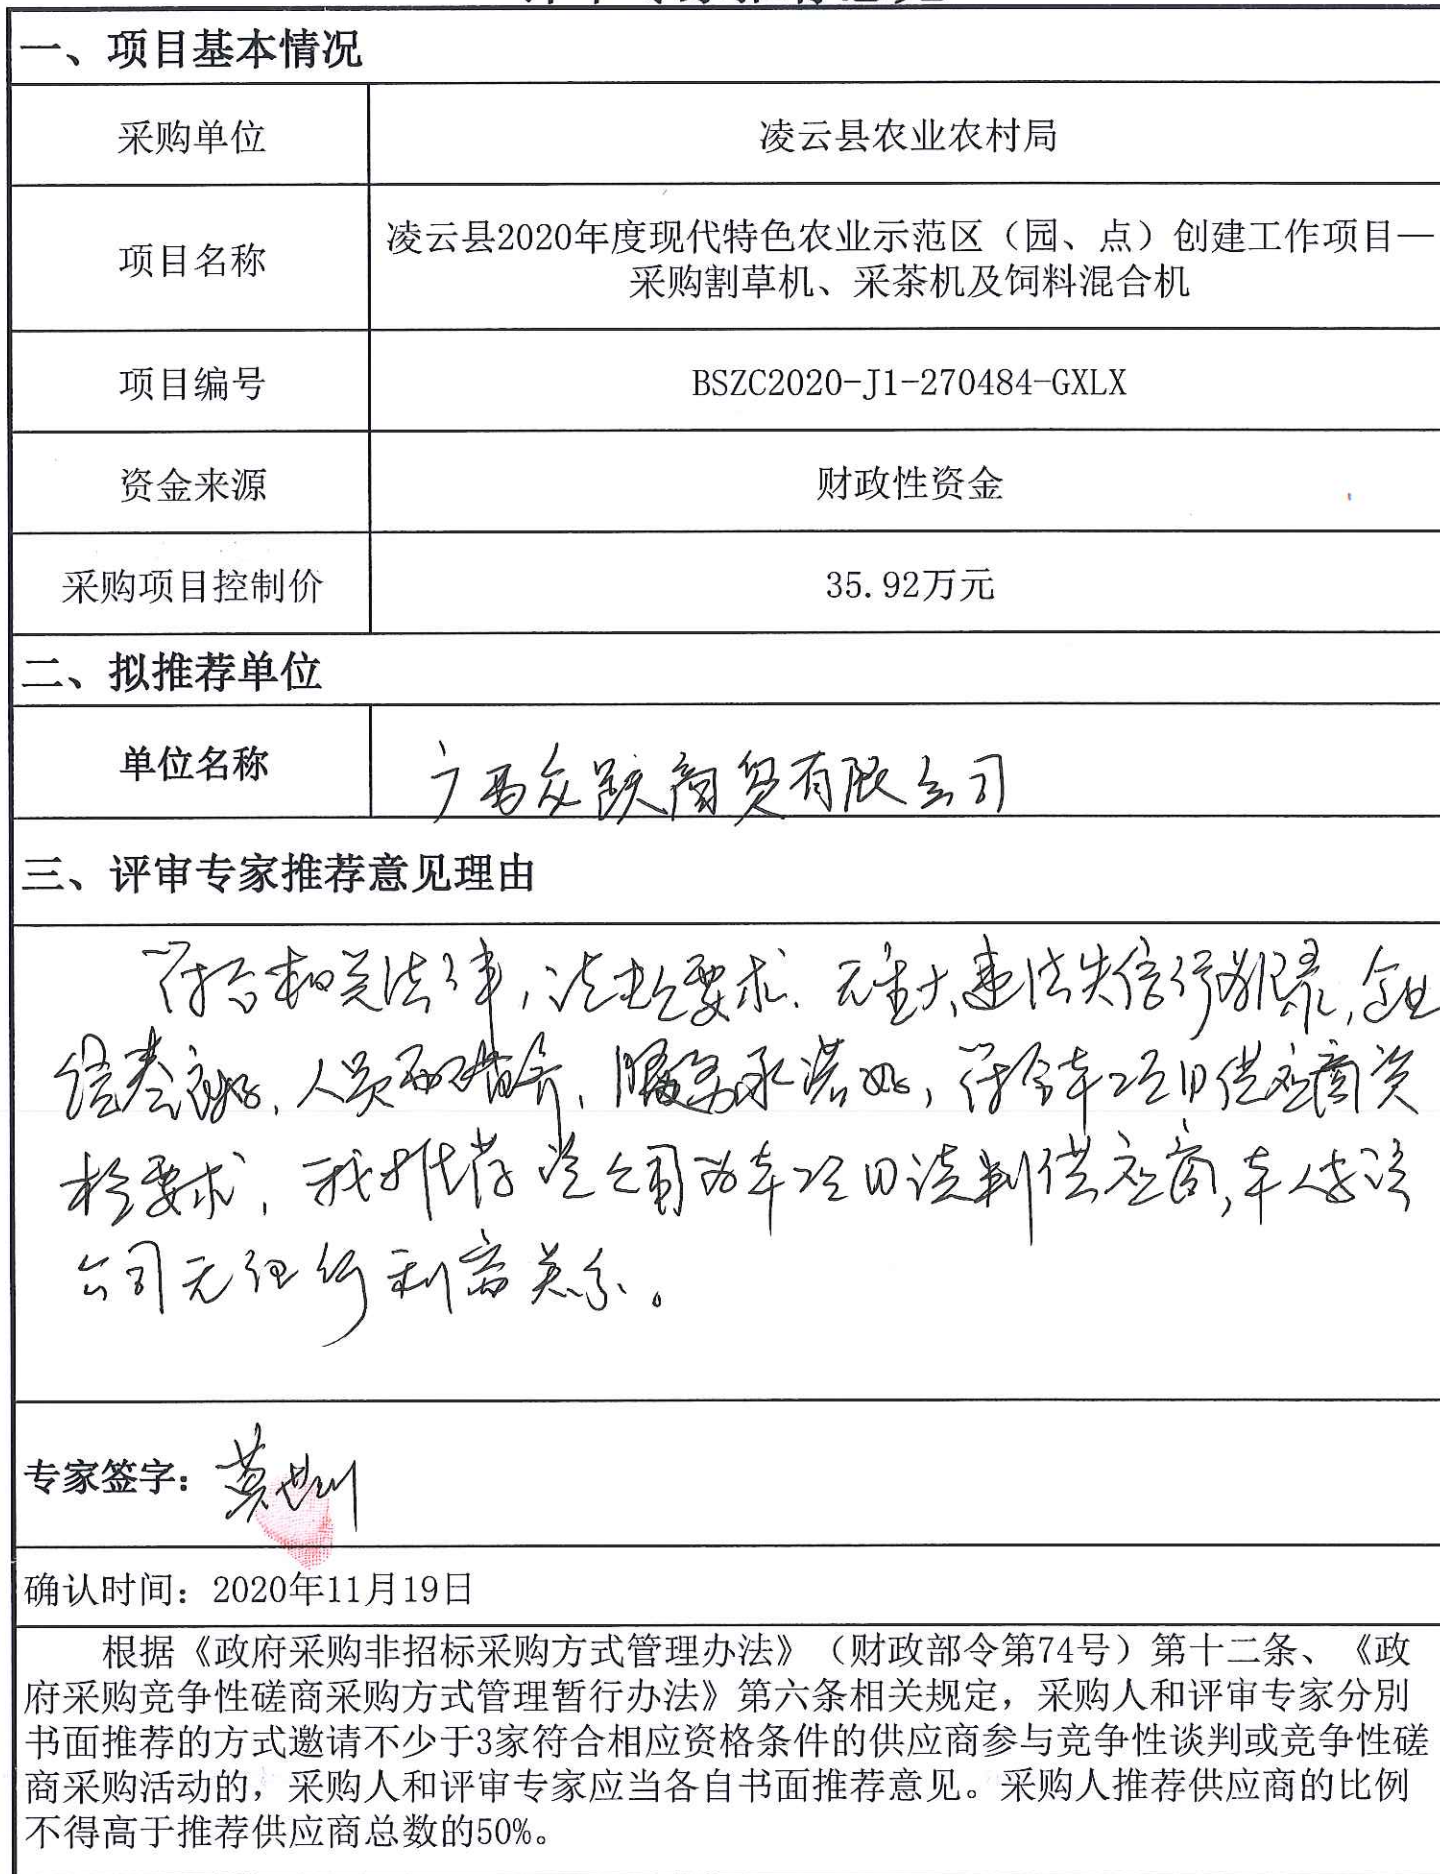 一、项目基本情况
采购单位
凌云县农业农村局
项目名称
凌云县2020年度现代特色农业示范区（园、点）创建工作项目—
采购割草机、采茶机及饲料混合机
项目编号
BSZC2020-J1-270484-GXLX
资金来源
财政性资金
采购项目控制价
35.92万元
二、拟推荐单位
单位名称
广西众跃商贸有限公司
三、评审专家推荐意见理由
符合相关法律,法规要求.无重大违法失信行为记录,企业
信誉良好,人员配备齐,服务承诺好,符合本项目供应商资
格要求,我推荐该公司为本项目谈判供应商,本人与该
公司无任何利害关系。
专家签字：
确认时间：2020年11月19日
根据《政府采购非招标采购方式管理办法》（财政部令第74号）第十二条、《政
府采购竞争性磋商采购方式管理暂行办法》第六条相关规定，采购人和评审专家分别
书面推荐的方式邀请不少于3家符合相应资格条件的供应商参与竞争性谈判或竞争性磋
商采购活动的，采购人和评审专家应当各自书面推荐意见。采购人推荐供应商的比例
不得高于推荐供应商总数的50%。